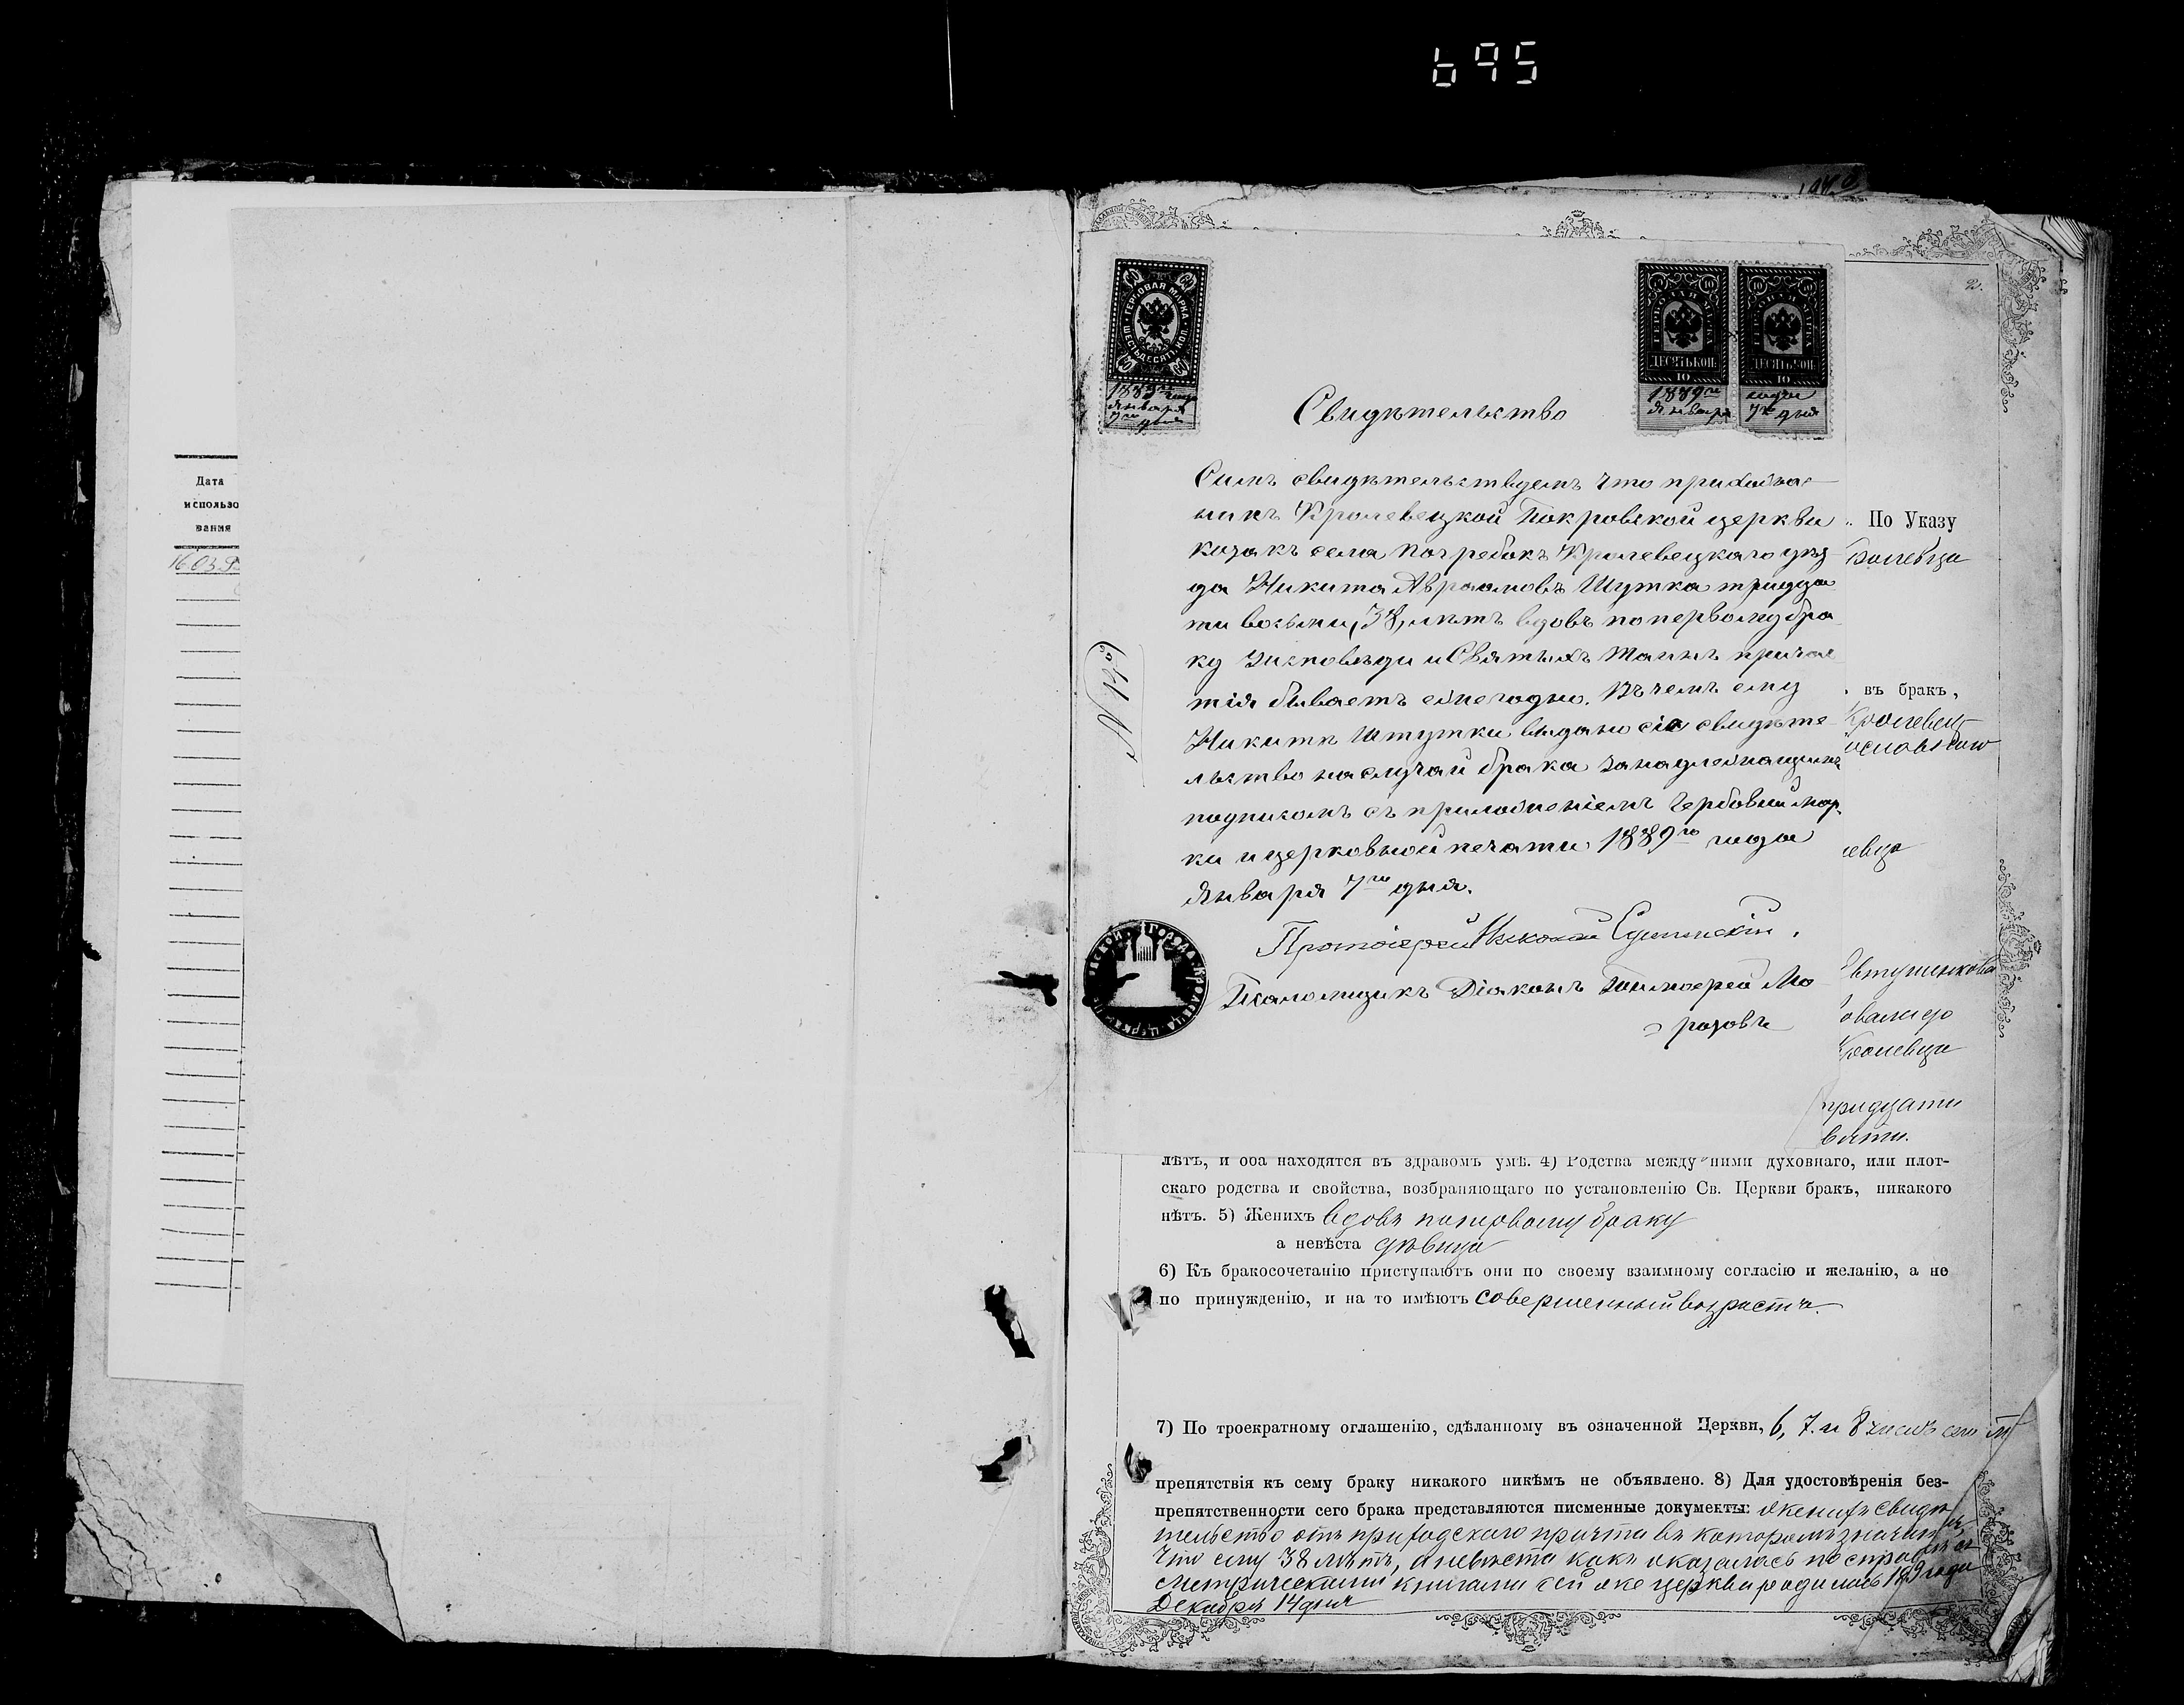 695
Дата
использо
вания
ГЕРБОВАЯ МАРКА ШЕСТЬДЕСЯТЪ КОП.
1889го года
Января
7го дня
ДЕСЯТЬ КОП.
10
1889го
Января
ДЕСЯТЬ КОП.
10
года
7го дня
2.
Свидѣтельство
Симъ свидѣтельствуемъ что прихожа-
нинъ Кролевецкой Покровской церкви
козакъ села Погребокъ Кролевецкаго уѣз
да Никита Авраамовъ Шутка тридца
ти восьми, 38, лѣтъ вдовъ по первому бра
ку Исповѣди и Святыхъ Таинъ прича
тія бываетъ ежегодно. Въ чемъ ему
Никитѣ Шутки выдано сіе свидѣте
льство на случай брака за надлежащимъ
подписомъ съ приложеніемъ Гербовой мар
ки и церковной печати 1889го года
Января 7го дня.
Протоіерей Николай
Псаломщикъ Діаконъ Тимофей Мо
розовъ
По Указу
въ бракъ,
Кролевец
евца
овалидо
Кролевца
тридцати
вяти.
лѣтъ, и оба находятся въ здравомъ умѣ. 4) Родства между ними духовнаго, или плот-
скаго родства и свойства, возбраняющаго по установленію Св. Церкви бракъ, никакого
нѣтъ. 5) Женихъ вдовъ по первому браку
а невѣста дѣвица
6) Къ бракосочетанію приступаютъ они по своему взаимному согласію и желанію, а не
по принужденію, и на то имѣютъ совершенный возрастъ.
7) По троекратному оглашенію, сдѣланному въ означенной Церкви, 6, 7. и 8 числъ
препятствія къ сему браку никакого никѣмъ не объявлено. 8) Для удостовѣренія без-
препятственности сего брака представляются писменные документы: Женихъ свидѣ
тельство отъ приходскаго причта въ которомъ значится,
что ему 38 лѣтъ, а невѣста какъ оказалось по справкѣ съ
метрическими книгами сей же церкви родилась года
Декабря 14 дня